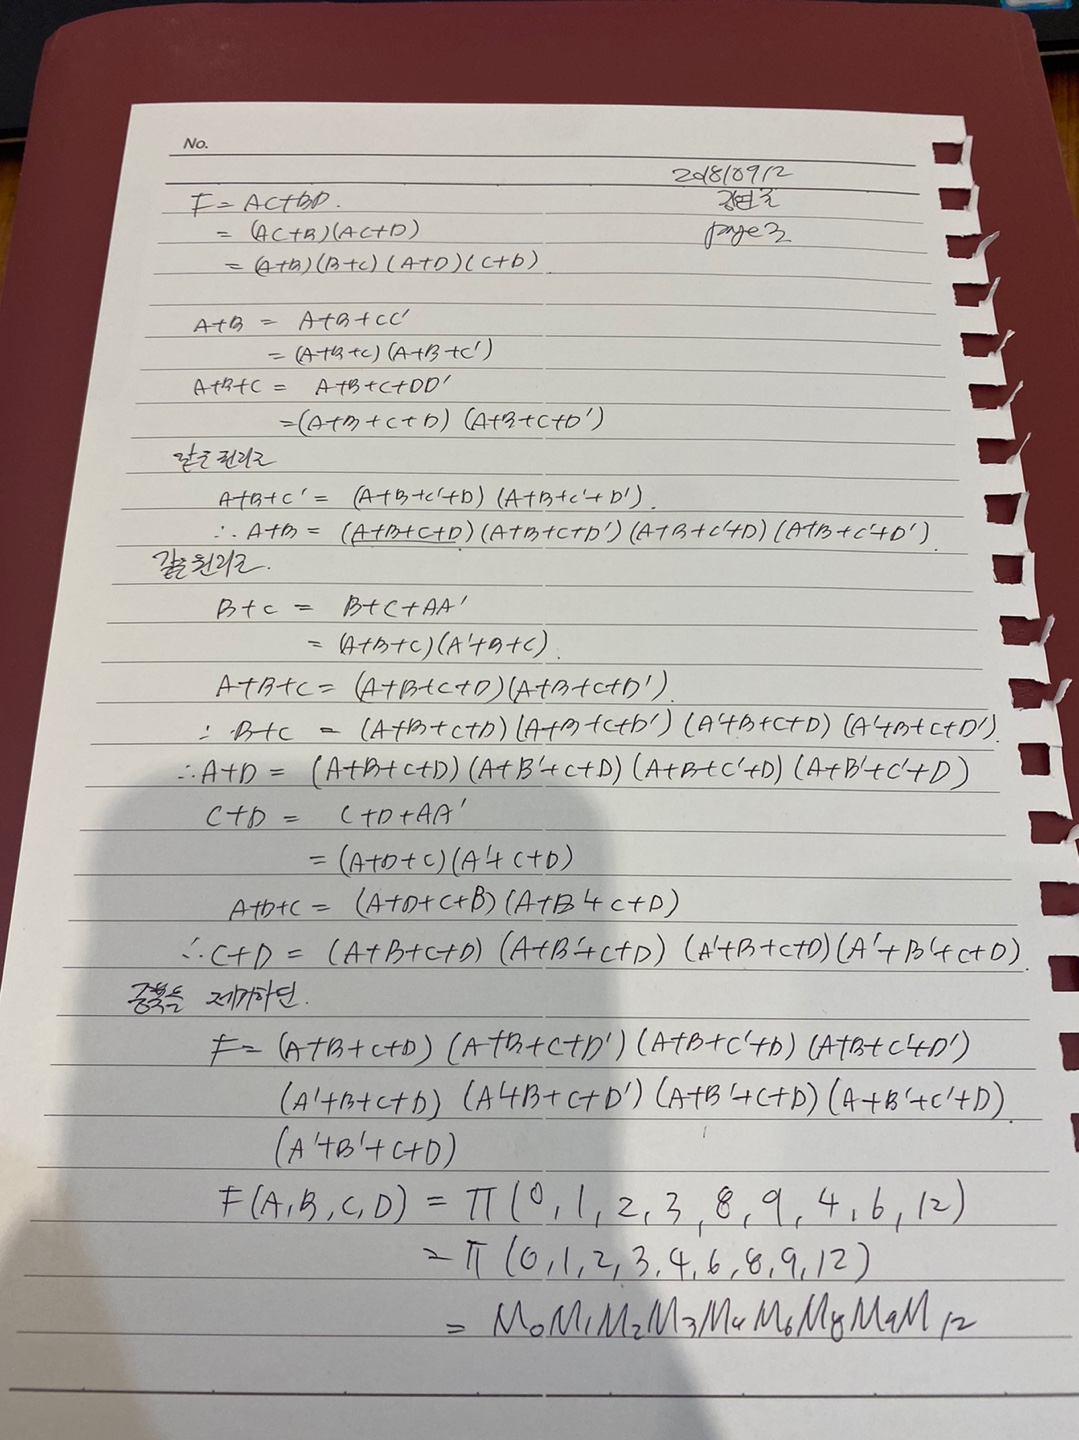 No.
2018/09/12
page 3
F = AC+BD.
= (AC+B)(AC+D)
= (A+B)(B+C)(A+D)(C+D)
A+B = A+B+CC'
= (A+B+C)(A+B+C')
A+B+C = A+B+C+DD'
=(A+B+C+D) (A+B+C+D')
같은 원리로
A+B+C' = (A+B+C'+D) (A+B+C'+D').
∴ A+B = (A+B+C+D)(A+B+C+D')(A+B+C'+D)(A+B+C'+D').
같은 원리로.
B+C = B+C+AA'
= (A+B+C)(A'+B+C).
A+B+C = (A+B+C+D)(A+B+C+D').
∴ B+C = (A+B+C+D)(A+B+C+D')(A'+B+C+D)(A'+B+C+D').
∴ A+D = (A+B+C+D)(A+B'+C+D)(A+B+C'+D)(A+B'+C'+D)
C+D = C+D+AA'
= (A+D+C)(A'+C+D)
A+D+C = (A+D+C+B)(A+B'+C+D)
∴ C+D = (A+B+C+D)(A+B'+C+D)(A'+B+C+D)(A'+B'+C+D).
중복을 제거하면.
F= (A+B+C+D)(A+B+C+D')(A+B+C'+D)(A+B+C'+D')
(A'+B+C+D)(A'+B+C+D')(A+B'+C+D)(A+B'+C'+D).
(A'+B'+C+D)
F(A,B,C,D) = π(0,1,2,3,8,9,4,6,12)
= π(0,1,2,3,4,6,8,9,12)
= M0M1M2M3M4M6M8M9M12